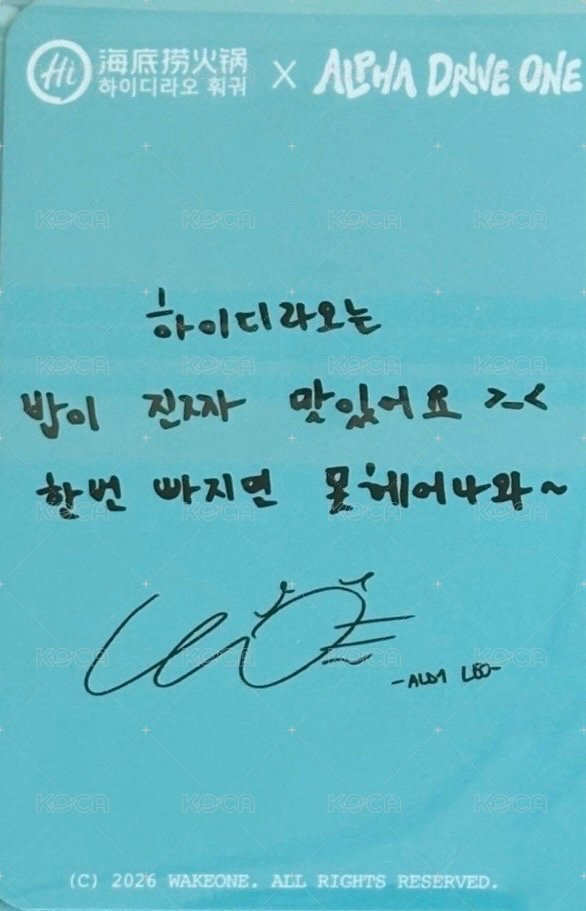 Hi 海底捞火锅 하이디라오 훠궈 X ALPHA DRIVE ONE
하이디라오는
밥이 진짜 맛있어요 >_<
한번 빠지면 못헤어나와~
-ALD1 LEO-
(C) 2026 WAKEONE. ALL RIGHTS RESERVED.
KOCA